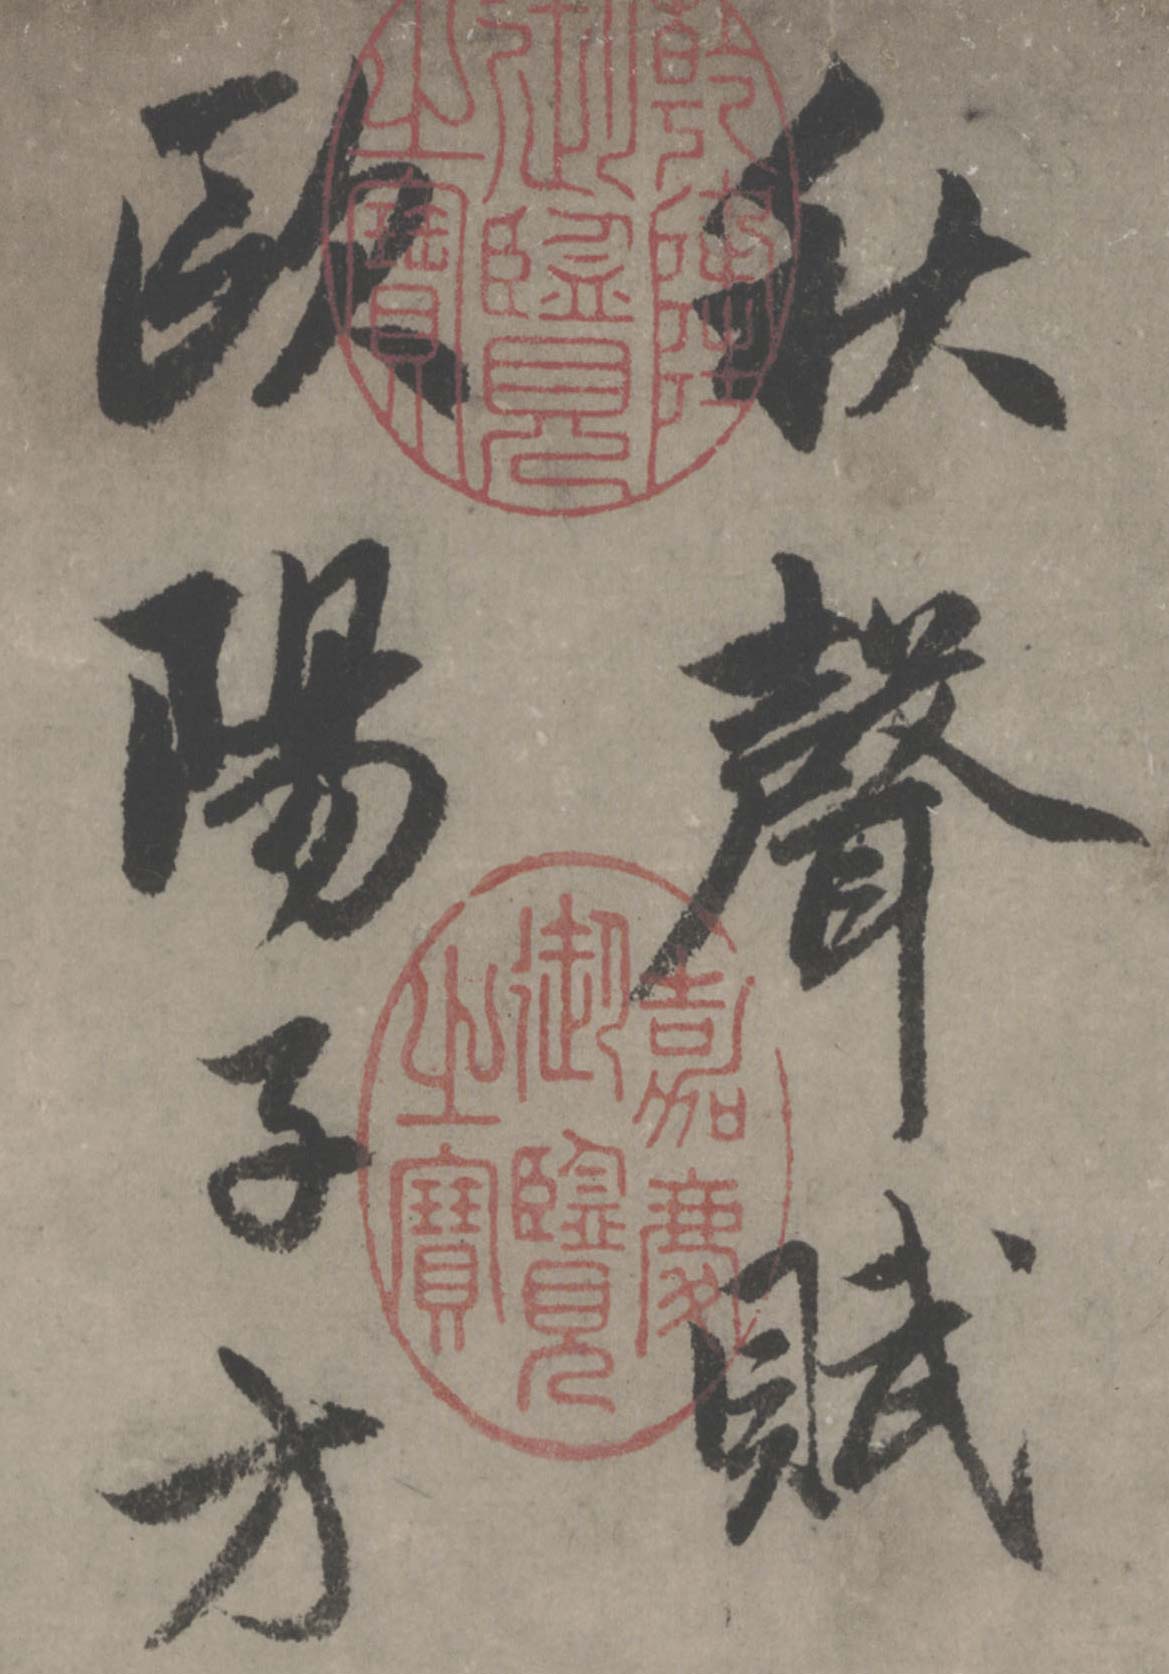 秋聲賦
歐陽子方
乾隆御覽之寶
嘉慶御覽之寶